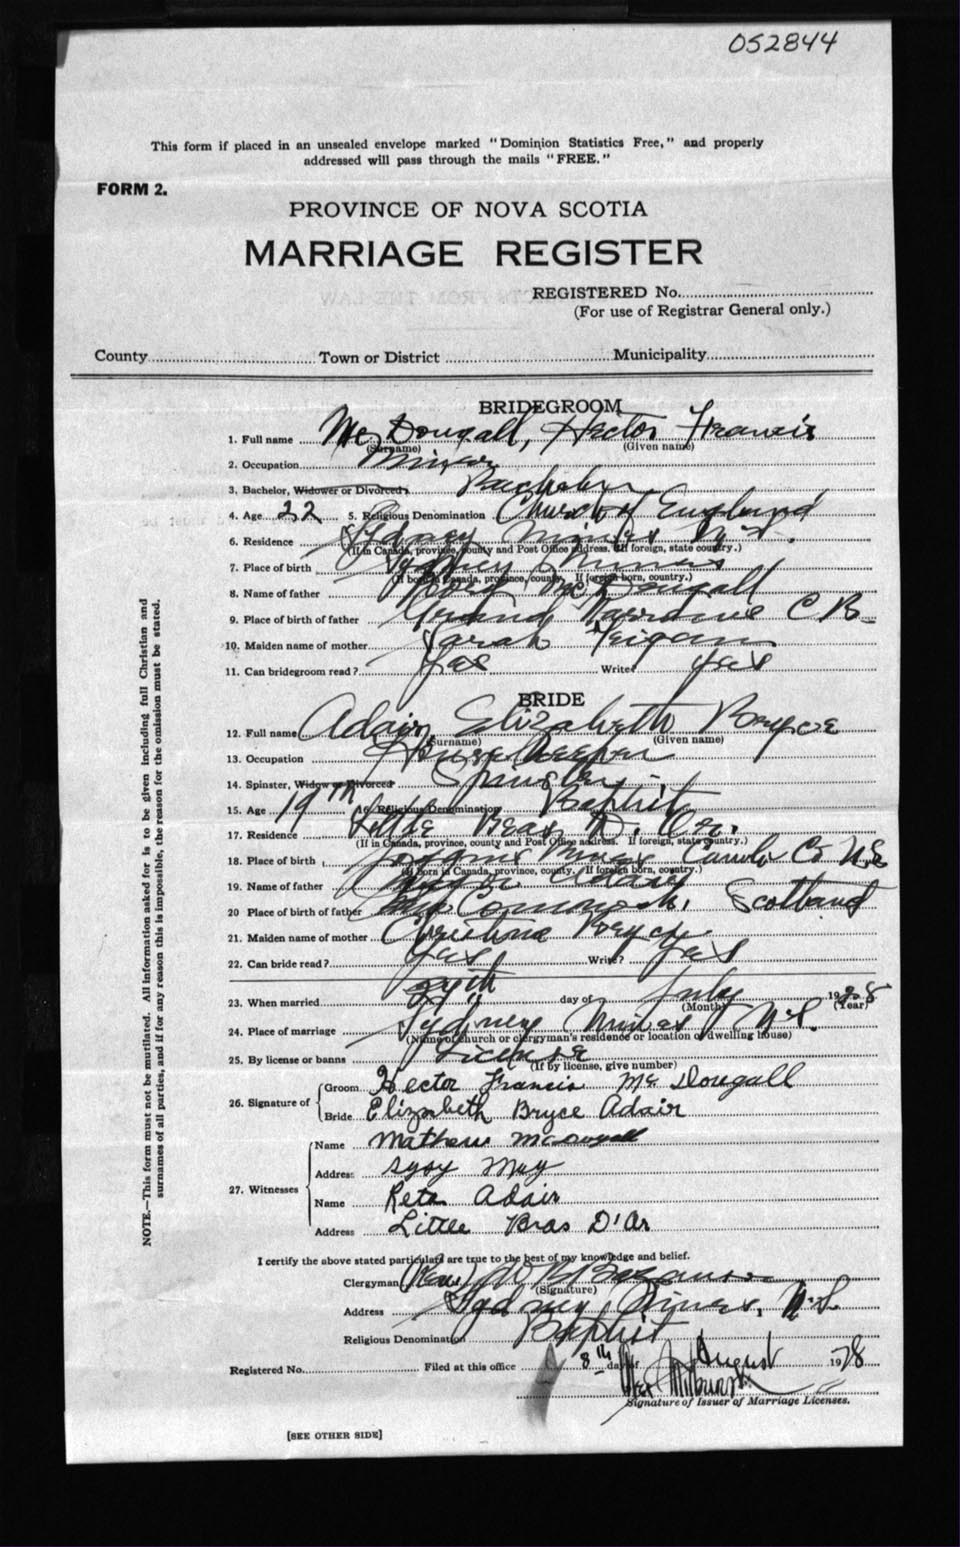 052844
This form if placed in an unsealed envelope marked "Dominion Statistics Free," and properly
addressed will pass through the mails "FREE."
FORM 2.
PROVINCE OF NOVA SCOTIA
MARRIAGE REGISTER
REGISTERED No.
(For use of Registrar General only.)
County Town or District Municipality
BRIDEGROOM
1. Full name McDougall, Hector Francis
(Surname) (Given name)
2. Occupation Miner
3. Bachelor, Widower or Divorced, Bachelor
4. Age 22 5. Religious Denomination Church of England
6. Residence Sydney Mines N.S.
(If in Canada, province, county and Post Office address. If foreign, state country.)
7. Place of birth Sydney Mines
(If born in Canada, province, county. If foreign born, country.)
8. Name of father McDougall
9. Place of birth of father Grand Narrows C B
10. Maiden name of mother Sarah
11. Can bridegroom read? Yes Write? Yes
BRIDE
12. Full name Adair, Elizabeth Bryce
(Surname) (Given name)
13. Occupation Housekeeper
14. Spinster, Widow or Divorced Spinster
15. Age 19 16. Religious Denomination Baptist
17. Residence Little Bras D. Or.
(If in Canada, province, county and Post Office address. If foreign, state country.)
18. Place of birth Joggins Mines Co N.S
(If born in Canada, province, county. If foreign born, country.)
19. Name of father Adair
20 Place of birth of father Scotland
21. Maiden name of mother Christina Bryce
22. Can bride read? Yes Write? Yes
23. When married day of July 1928
(Month) (Year)
24. Place of marriage Sydney Mines N.S.
(Name of church or clergyman's residence or location of dwelling house)
25. By license or banns License
(If by license, give number)
26. Signature of
Groom Hector Francis McDougall
Bride Elizabeth Bryce Adair
27. Witnesses
Name Mathew McDougall
Address Sydy
Name Reta Adair
Address Little Bras D'Or
I certify the above stated particulars are true to the best of my knowledge and belief.
Clergyman (Rev)
(Signature)
Address Sydney Mines, N.S.
Religious Denomination Baptist
Registered No. Filed at this office 8th day of August 1928
Signature of Issuer of Marriage Licenses.
[SEE OTHER SIDE]
NOTE.—This form must not be mutilated. All information asked for is to be given including full Christian and
surnames of all parties, and if for any reason this is impossible, the reason for the omission must be stated.